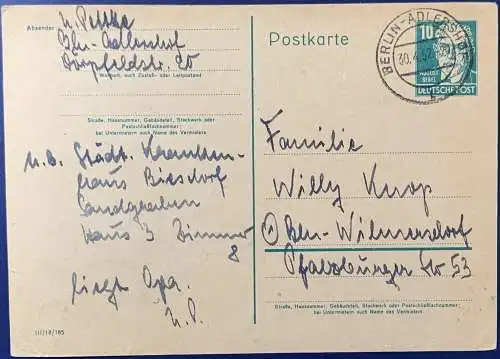 Absender: N. Pettke
Bln-Adlershof
Dörpfeldstr. 20
Wohnort, auch Zustell- oder Leitpostamt
Straße, Hausnummer, Gebäudeteil, Stockwerk oder
Postschließfachnummer;
bei Untermietern auch Name des Vermieters
n.b. Städt. Kranken-
haus Biesdorf
Sandgraben
Haus 3 Zimmer
8
liegt Opa.
N.P.
III/18/185
Postkarte
BERLIN-ADLERSHOF
10
AUGUST
BEBEL
DEUTSCHE POST
Familie
Willy Knop
Bln-Wilmersdorf
Pfalzburger Str 53
Straße, Hausnummer, Gebäudeteil, Stockwerk oder Postschließfachnummer;
bei Untermietern auch Name des Vermieters